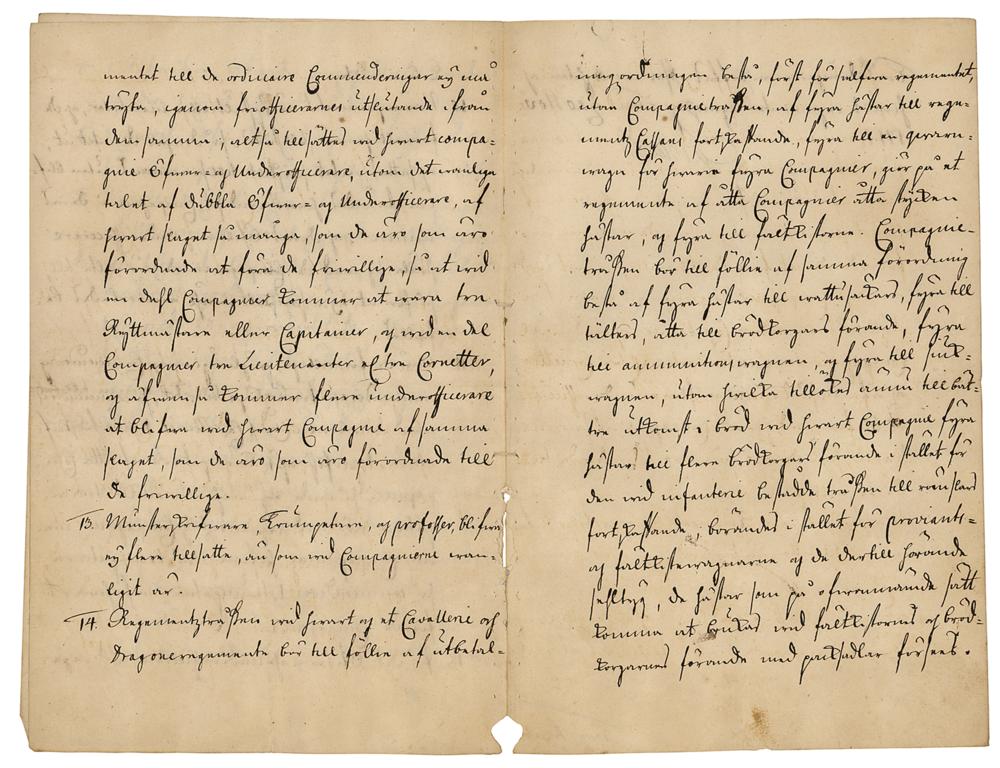 mentet till de ordinaire Commenderingar ey må
tryta, igenom friofficerarnes utslutande ifrån
densamma, altså tillsättes wid hwart compa=
gnie Öfwer= og Underofficerare, utom det wanliga
talet af dubbla Öfwer= og Underofficerare, af
hwart slaget så många, som de äro som äro
förordnade at föra de friwillige, så at wid
en dehl Compagnier kommer at wara tre
Ryttmästare eller Capitainer, og wid en del
Compagnier tre Lieutenanter el tre Cornetter,
og äfwen så kommer flere underofficerare
at blifwa wid hwart Compagnie af samma
slaget, som de äro, som äro förordnade till
de friwillige.
13. Munsterskrifware, Trumpetare, og profosser, blifwa
ey flere tillsatte, än som wid Compagnierne wan=
ligit är.
14. Regementztrossen wid hwart og et Cavallerie och
Dragoneregemente bör till föllie af utbetal=
ningordningen bestå, först för sielfwa regementet,
utan Compagnietrossen, af fyra hästar till rege=
mentz Cassans fortskaffande, fyra till en qwarn=
wagn för hwaria fyra Compagnier, giör på et
regemente af åtta Compagnier åtta stycken
hästar, og fyra till fältkistorne. Compagnie=
trossen bör till föllie af samma förordning
bestå af fyra hästar till wattusäckars, fyra till
tälters, åtta till brödkorgars förande, fyra
till ammunitionswagnen, og fyra till siuk=
wagnen, utom hwilka tillökes ännu till bät=
tre utkomst i bröd wid hwart Compagnie fyra
hästar till flere brödkorgars förande i stället för
den wid infanterie bestådde trossen till
fortskaffande, börandes i stället för proviants=
og fältkistewagnarne og de dertill hörande
sehltyg, de hästar som på ofwannämde sätt
komma at brukas wid fältkistornes og bröd=
korgarnes förande med packsadlar förses.